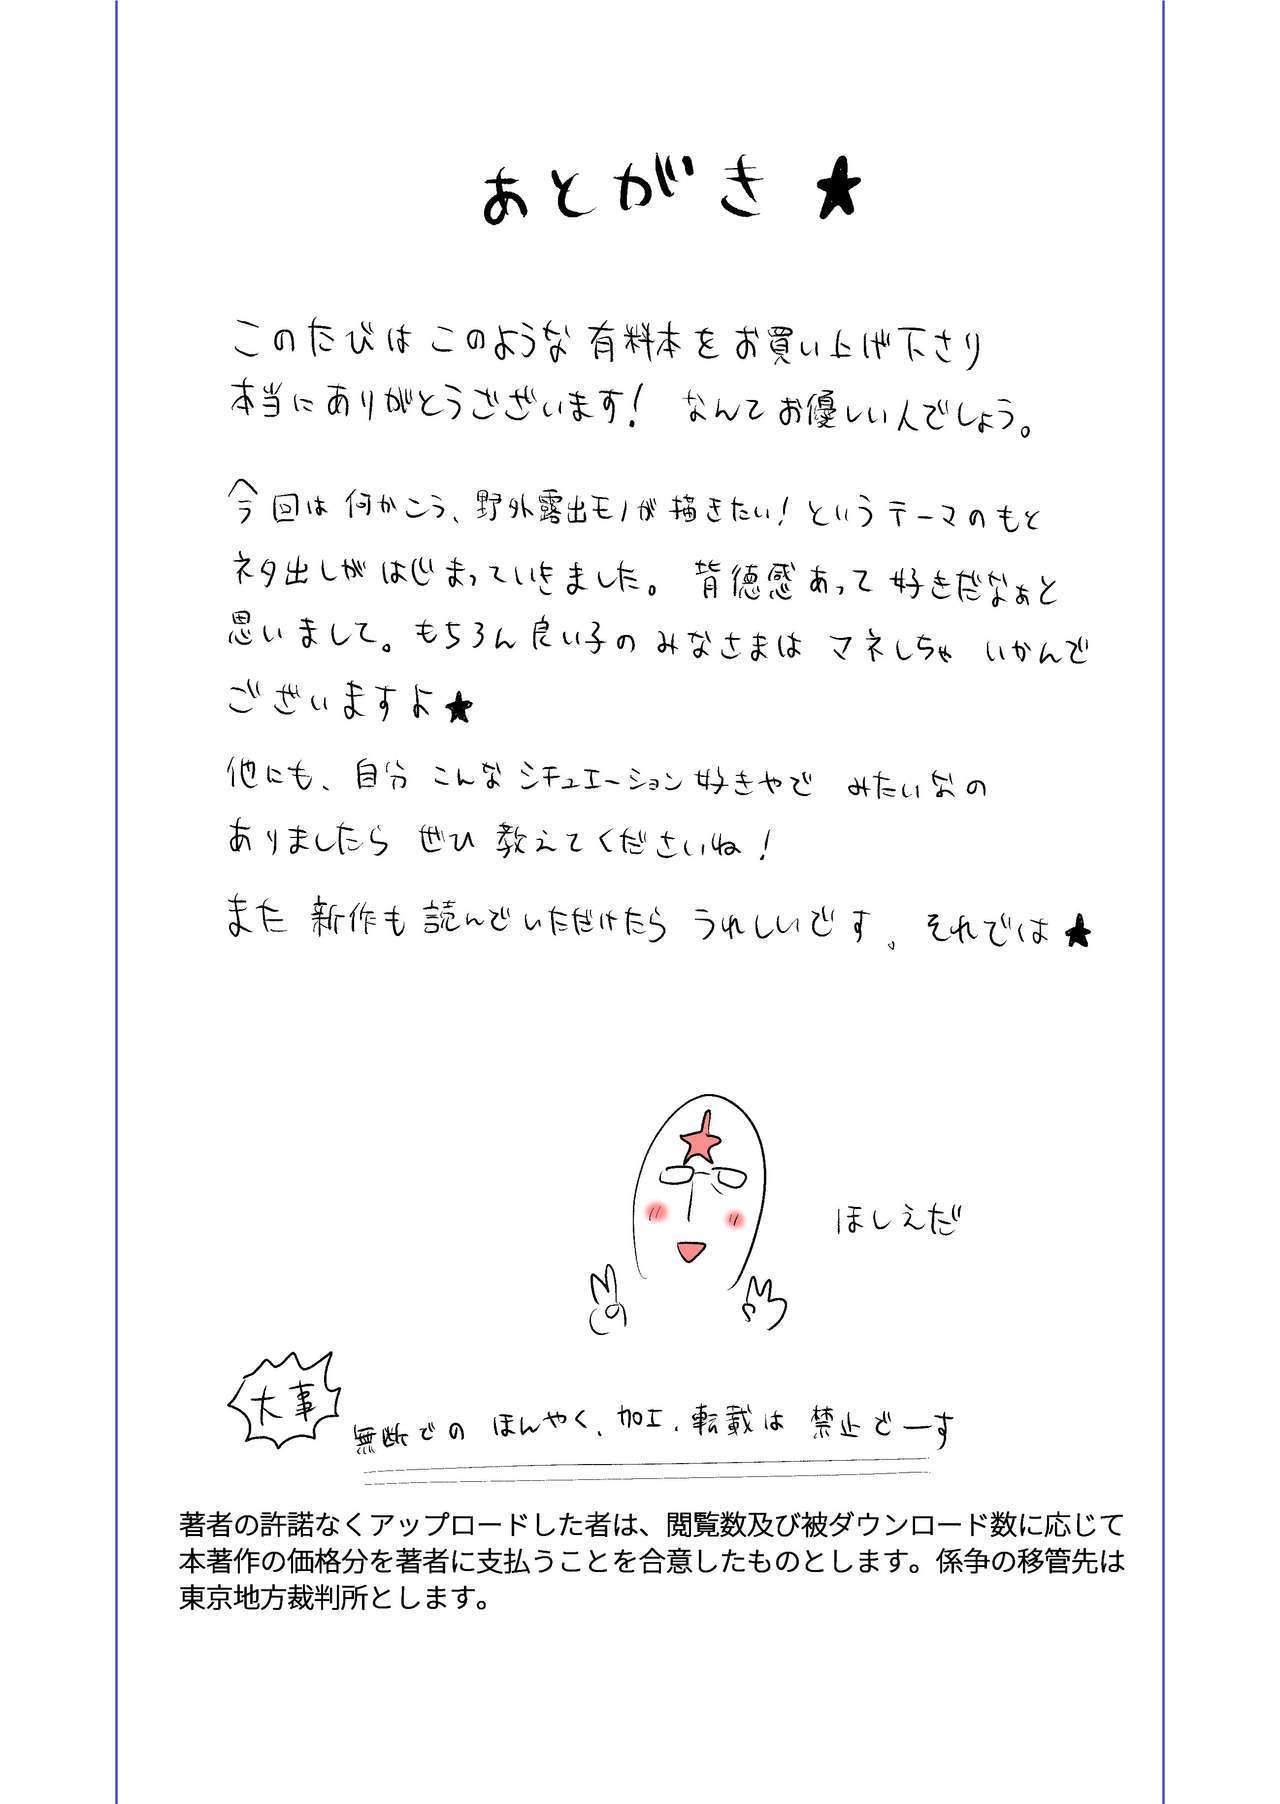 あとがき★
このたびは このような有料本をお買い上げ下さり
本当にありがとうございます! なんてお優しい人でしょう。
今回は 何かこう、野外露出モノが描きたい!というテーマのもと
ネタ出しがはじまっていきました。背徳感あって好きだなぁと
思いまして。もちろん良い子のみなさまは マネしちゃ いかんで
ございますよ★
他にも、自分 こんなシチュエーション好きやで みたいなの
ありましたら ぜひ 教えてくださいね!
また 新作も 読んでいただけたら うれしいです。それでは★
ほしえだ
大事
無断での ほんやく、加工、転載は 禁止でーす
著者の許諾なくアップロードした者は、閲覧数及び被ダウンロード数に応じて
本著作の価格分を著者に支払うことを合意したものとします。係争の移管先は
東京地方裁判所とします。